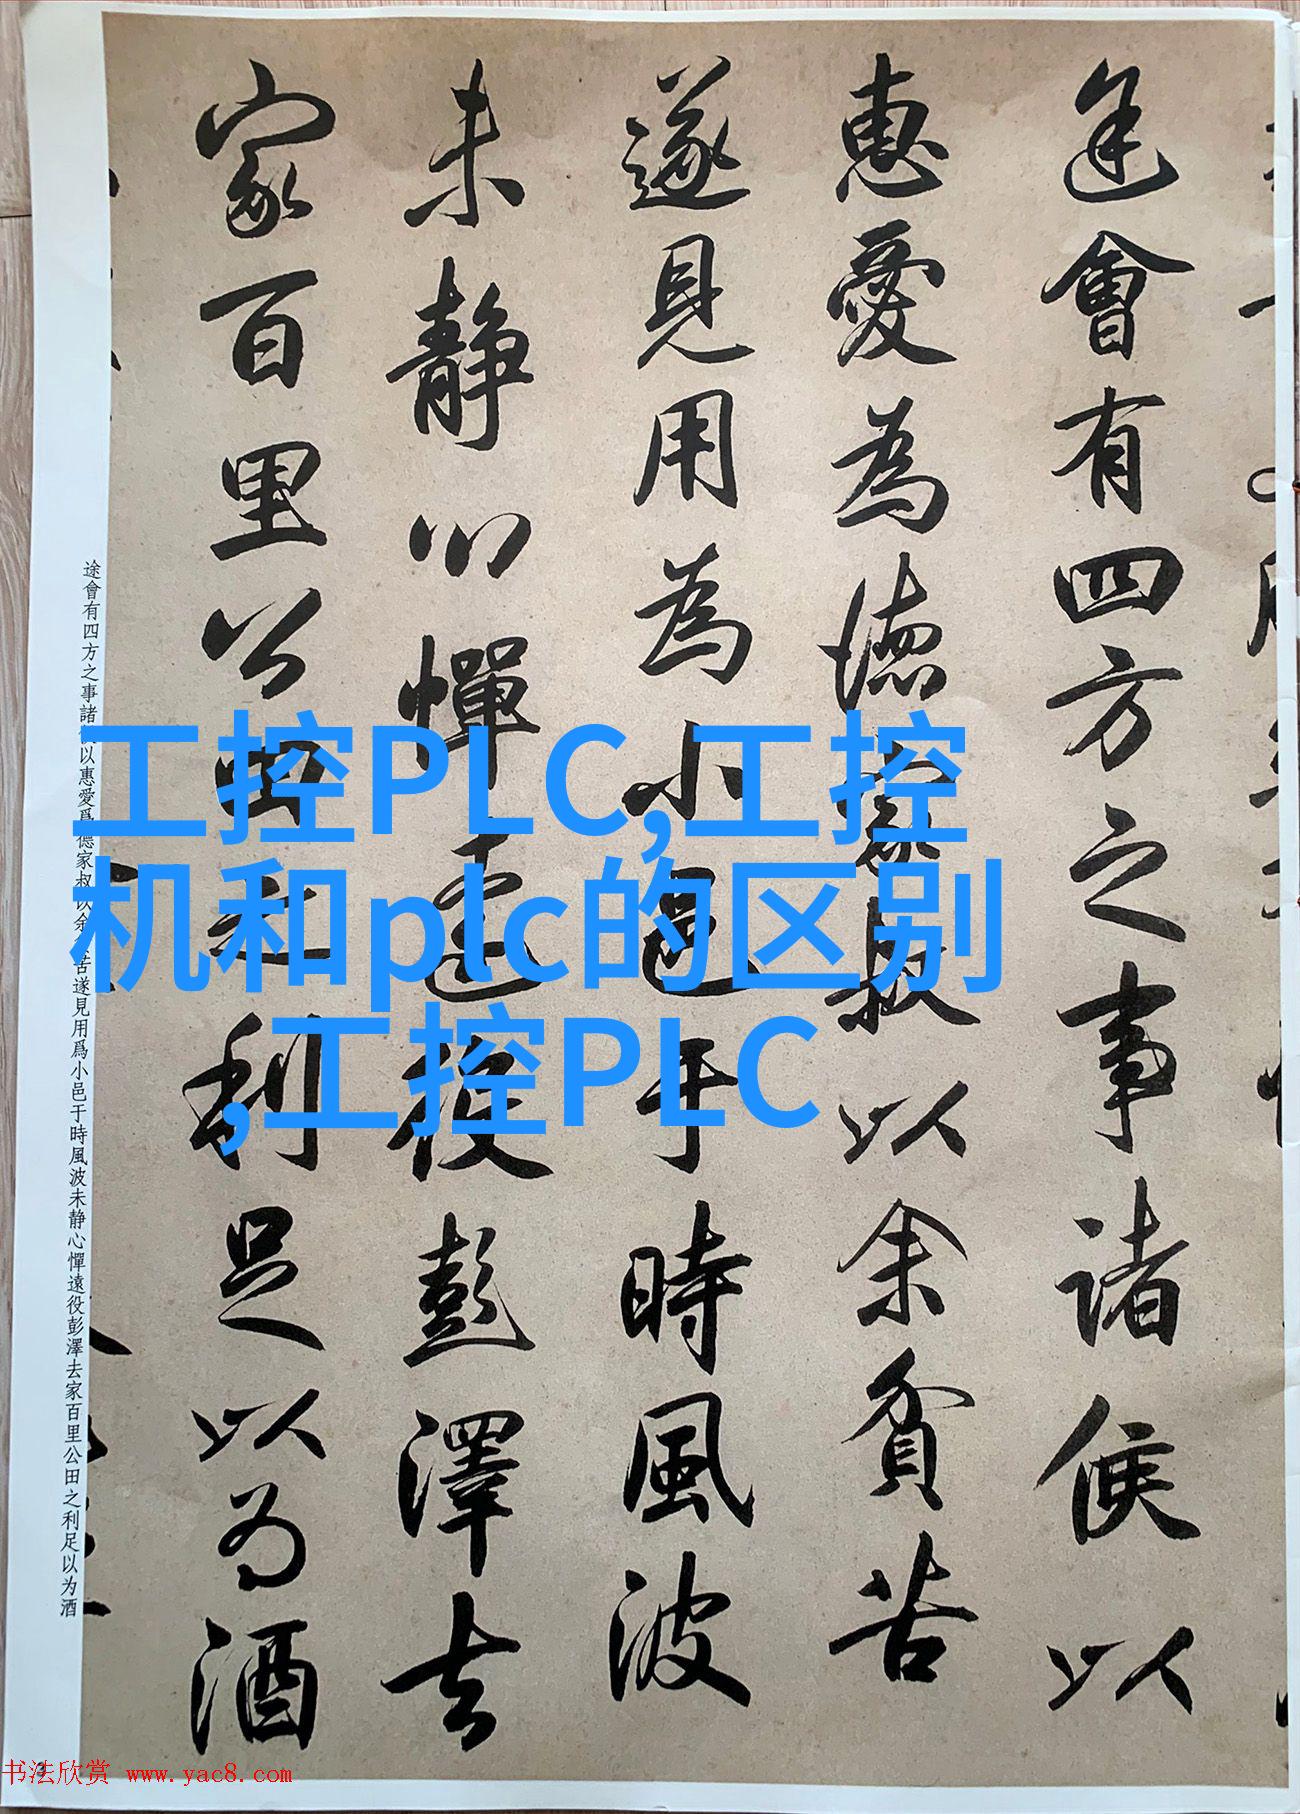 途會有四方之事諸侯以
惠愛為德家叔以余貧苦
遂見用為小邑于時風波
未靜心憚遠役彭澤去
家百里公田之利足以為酒
途會有四方之事諸侯以惠愛爲德家叔以余貧苦遂見用爲小邑于時風波未静心憚遠役彭澤去家百里公田之利足以为酒
工控PLC,工控
机和plc的区别
,工控PLC
3
书法欣赏 www.yac8.com